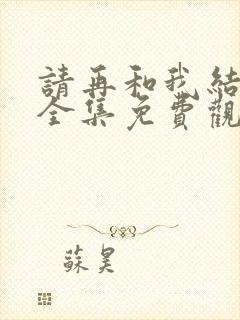 請再和我結
全集免費觀
蘇昊